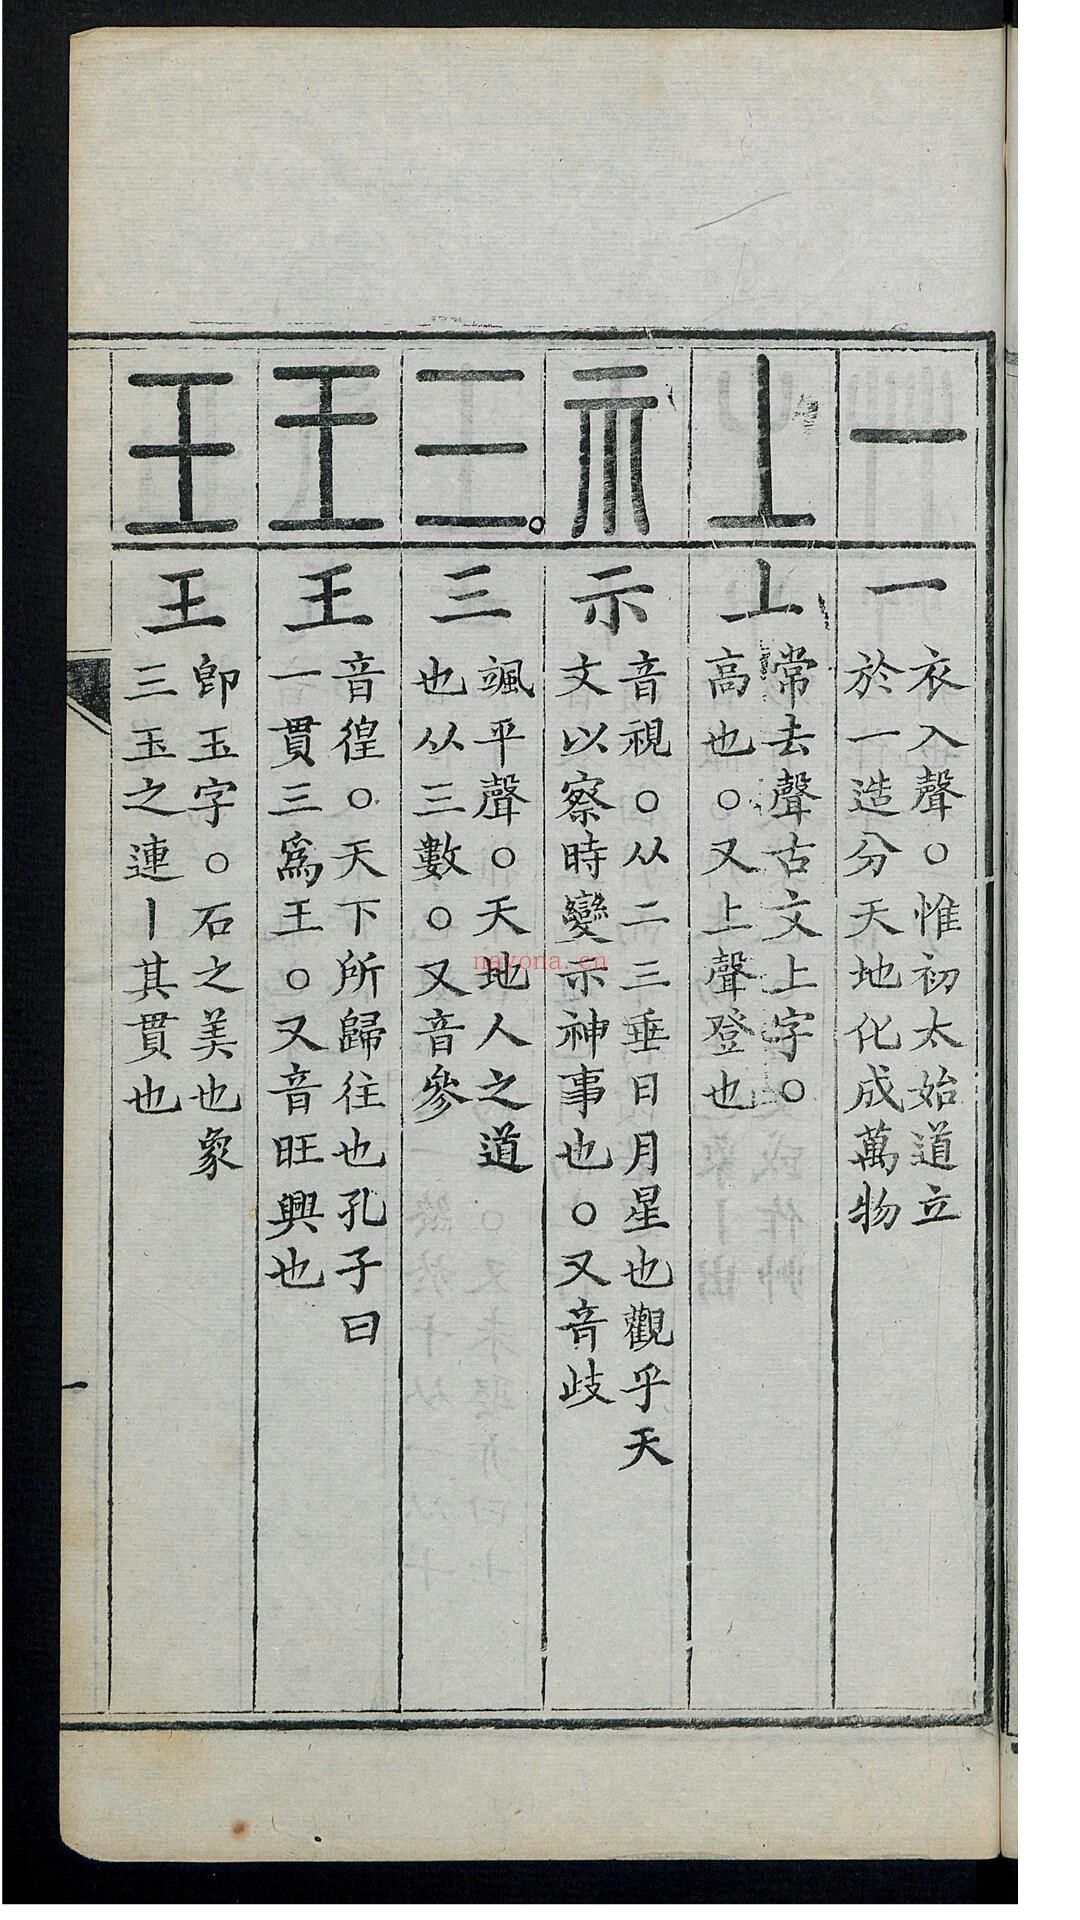 一
一
衣入聲○惟初太始道立
於一造分天地化成萬物
丄
丄
常去聲古文上字○
高也○又上聲登也
示
示
音視○从二三垂日月星也觀乎天
文以察時變示神事也○又音歧
三
三
颯平聲○天地人之道
也从三數○又音參
王
王
音徨○天下所歸往也孔子曰
一貫三爲王○又音旺興也
王
王
卽玉字○石之美也象
三玉之連丨其貫也
一
nayona.cn